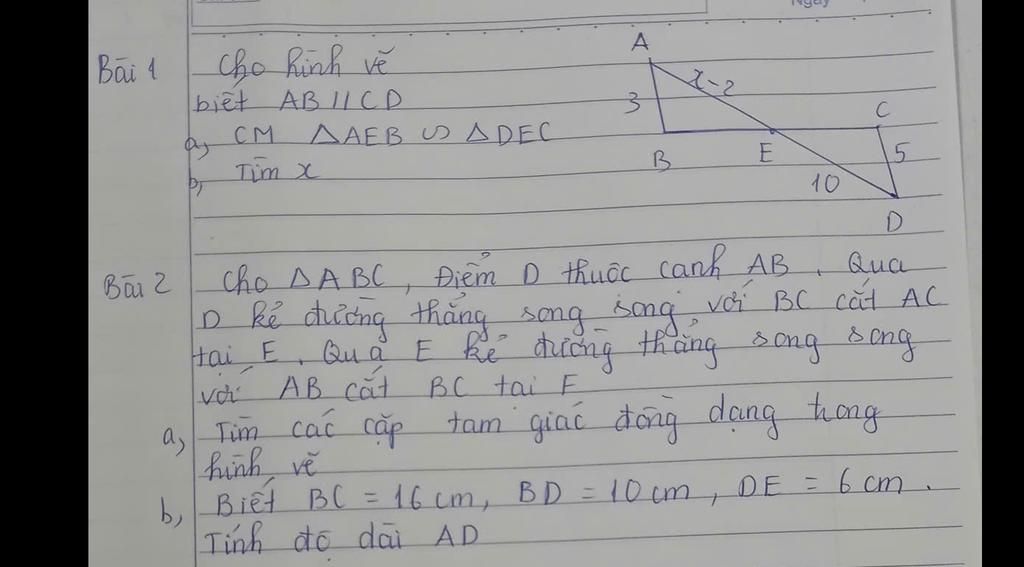 Ngày
Bài 1 Cho hình vẽ
biết AB // CD
a, CM △AEB ∽ △DEC
b, Tìm x
A
x-2
3
C
B
E
5
10
D
Bài 2 Cho △ABC, Điểm D thuộc cạnh AB. Qua
D kẻ đường thẳng song song với BC cắt AC
tại E. Qua E kẻ đường thẳng song song
với AB cắt BC tại F
a, Tìm các cặp tam giác đồng dạng trong
hình vẽ
b, Biết BC = 16 cm, BD = 10 cm, DE = 6 cm.
Tính độ dài AD